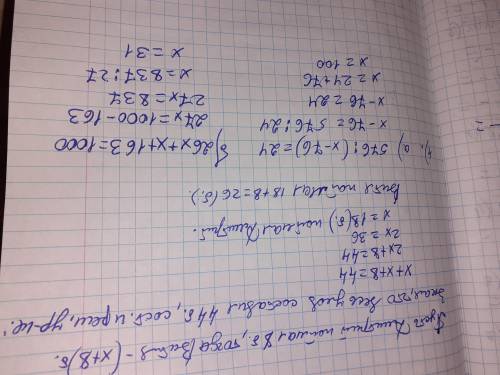 Пусть Дмитрий поймал x б., тогда Витя - (x+8) б.
Зная, что весь улов составил 44 б., сост. и реш. ур-ие:
x+x+8=44
2x+8=44
2x=36
x=18 (б.) поймал Дмитрий.
Витя поймал 18+8=26 (б.)
4). а) 576:(x-76)=24
x-76=576:24
x-76=24
x=24+76
x=100
б) 26x+x+163=1000
27x=1000-163
27x=837
x=837:27
x=31